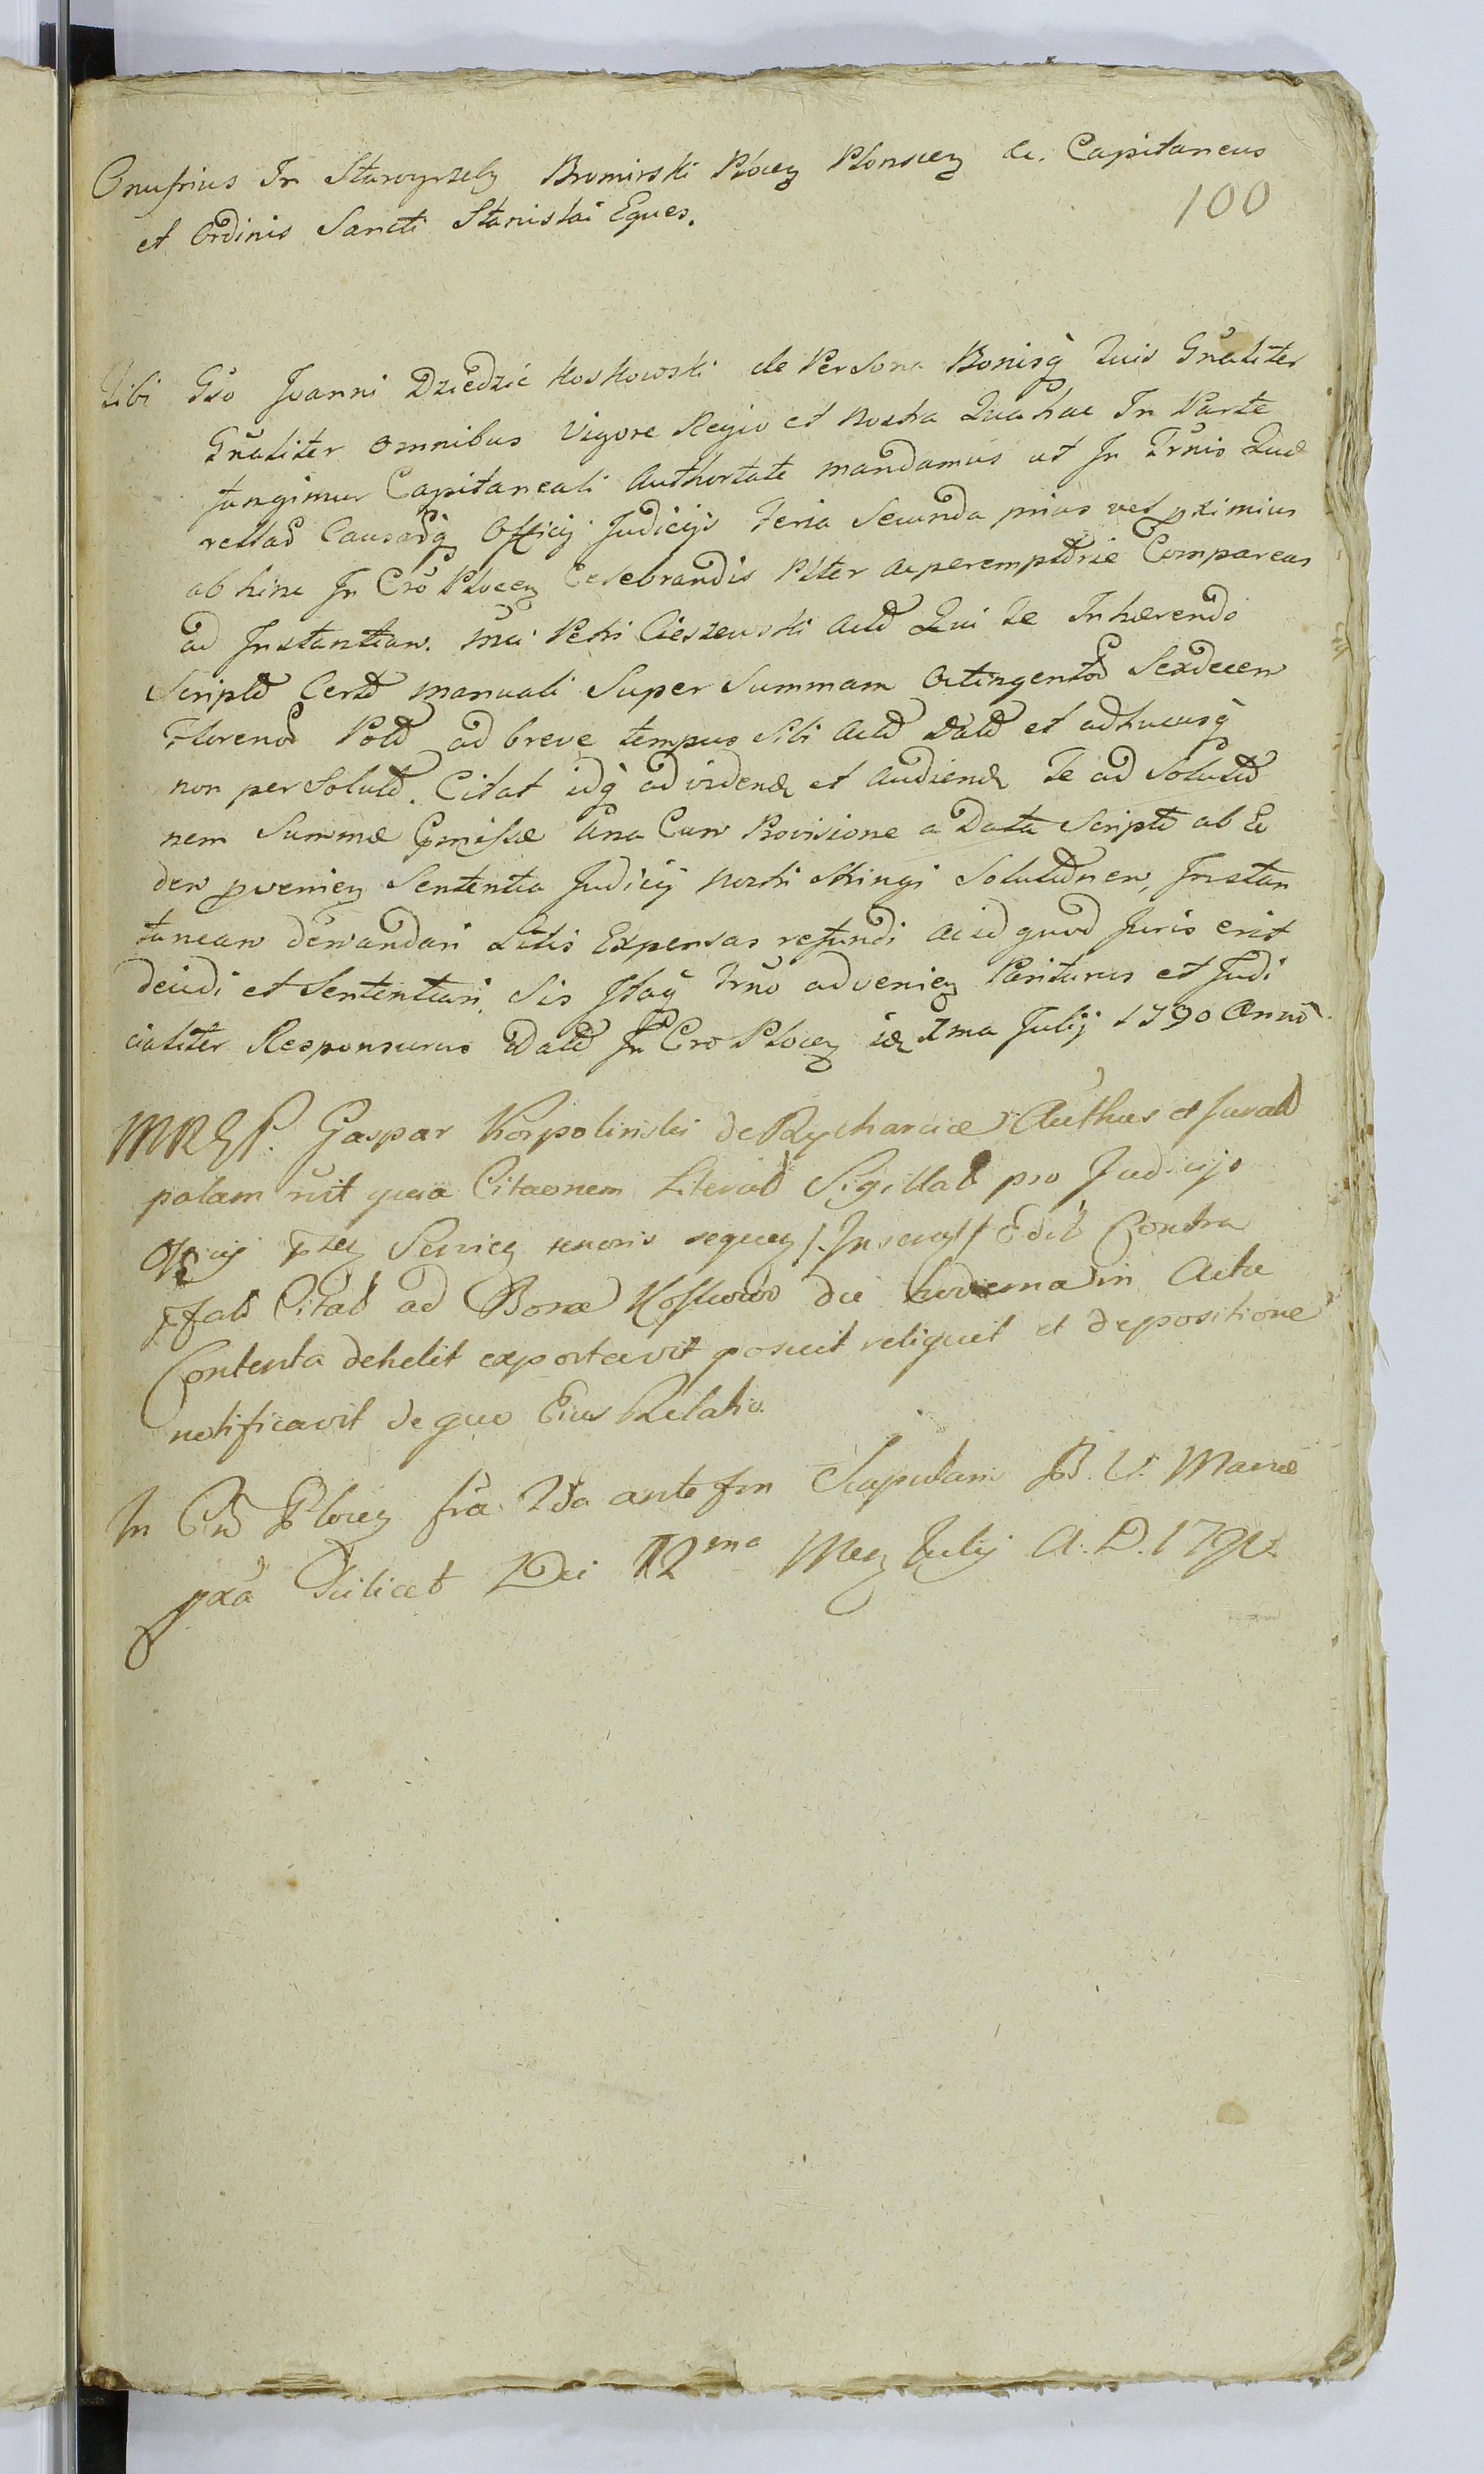 Onufrius In Staroyrzeby Bromirski Płocen Płonscen &c. Capitaneus
100
et Ordinis Sancti Stanislai Eques.
Tibi Gso Joanni Dziedzic Koskowski de Persona Bonisq Tuis Gnaliter
Gnaliter omnibus Vigore Regio et nostra Qua hac In Parte
fungimur Capitaneali Authortate mandamus ut In Trnis Que
rellad Causarq Officij Judicijs Feria Secunda prius vel pximius
ab hinc In Cro Plocen Celebrandis Plter ac peremptorie Compareas
ad Instantiam. Petri Cieszewski Actd Qui Te Inhærendo
Scriptd Certd manuali Super Summam Octingentod Sexdecem
Florenod Pold ad breve tempus Sibi Actd Datd et adhucusq
non persolutd. Citat idq ad videnđ et audienđ Te ad Solutio
nem Summæ Præmissæ una Cum Provisione a Data Scriptd ab Ea
dem pvenien Sententia Judicij nostri Stringi Solutionem, Instan
taneam demandari Litis Expensas refundi ac id quod Juris erit
decidi et Sententiari Sis Itaq Trno advenien Pariturus et Judi
cialiter Responsurus Datd In Cro Plocen 1ma Julij 1790 Anno
Gaspar Korpolinski de Rycharcice Authus et Juratd
palam rnit quia Citaonem Literald Sigillatd pro Judicijs
Officij Servien tenoris sequen /. Inserat / Edit Contra
Citatd ad Bona Koskowo die hodierna in Actu
Contenta detulit exportavit posuit reliquit et depositione
notificavit de quo Eius Relatio.
In Cro Plocen fria 2da ante fm Scapularis B. V. Mariæ
pxa Scilicet Die 12ma Men Julij A. D. 1790.